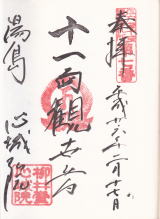 奉拝
平成廿六年二月十七日
十一面観世音
湯島
心城院
柳井堂
心城院